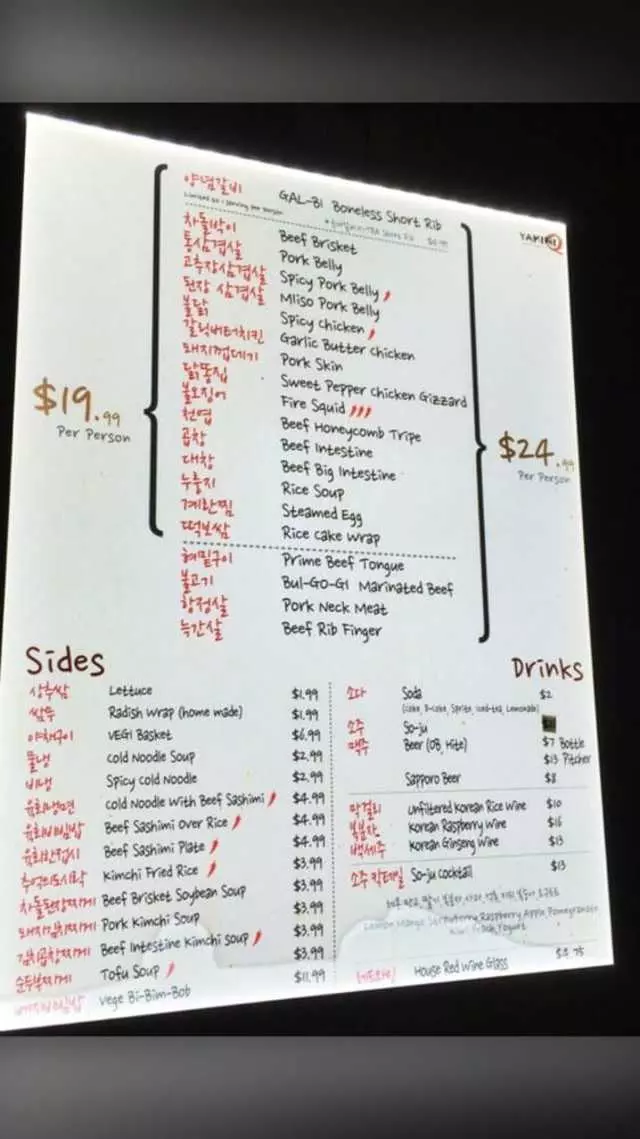 양념갈비 GAL-BI Boneless Short Rib
Limited to 1 serving per person
YAKINIQ
차돌박이 Beef Brisket
통삼겹살 Pork Belly
고추장삼겹살 Spicy Pork Belly
된장 삼겹살 Miso Pork Belly
불닭 Spicy Chicken
갈릭버터치킨 Garlic Butter Chicken
돼지껍데기 Pork Skin
닭똥집 Sweet Pepper Chicken Gizzard
불오징어 Fire Squid
천엽 Beef Honeycomb Tripe
곱창 Beef Intestine
대창 Beef Big Intestine
누룽지 Rice Soup
계란찜 Steamed Egg
떡보쌈 Rice Cake Wrap
$19.99
Per Person
$24.99
Per Person
혀밑구이 Prime Beef Tongue
불고기 Bul-GO-GI Marinated Beef
항정살 Pork Neck Meat
늑간살 Beef Rib Finger
Sides
상추쌈 Lettuce $1.99
쌈무 Radish Wrap (home made) $1.99
야채구이 VEGI Basket $6.99
물냉 Cold Noodle Soup $2.99
비냉 Spicy Cold Noodle $2.99
육회냉면 Cold Noodle With Beef Sashimi $4.99
육회비빔밥 Beef Sashimi Over Rice $4.99
육회한접시 Beef Sashimi Plate $4.99
추억의도시락 Kimchi Fried Rice $3.99
차돌된장찌개 Beef Brisket Soybean Soup $3.99
돼지김치찌개 Pork Kimchi Soup $3.99
김치곱창찌개 Beef Intestine Kimchi Soup $3.99
순두부찌개 Tofu Soup $3.99
Vege Bi-Bim-Bob $11.99
Drinks
소다 Soda $2
(Coke, D-Coke, Sprite, Iced-tea, Lemonade)
소주 So-ju
맥주 Beer (OB, Hite) $7 Bottle
$13 Pitcher
Sapporo Beer $8
막걸리 Unfiltered Korean Rice Wine $10
복분자 Korean Raspberry Wine $16
백세주 Korean Ginseng Wine $13
소주 칵테일 So-ju Cocktail $13
Lemon Mango Strawberry Raspberry Apple Pomegranate
Kiwi Peach Yogurt
House Red Wine Glass